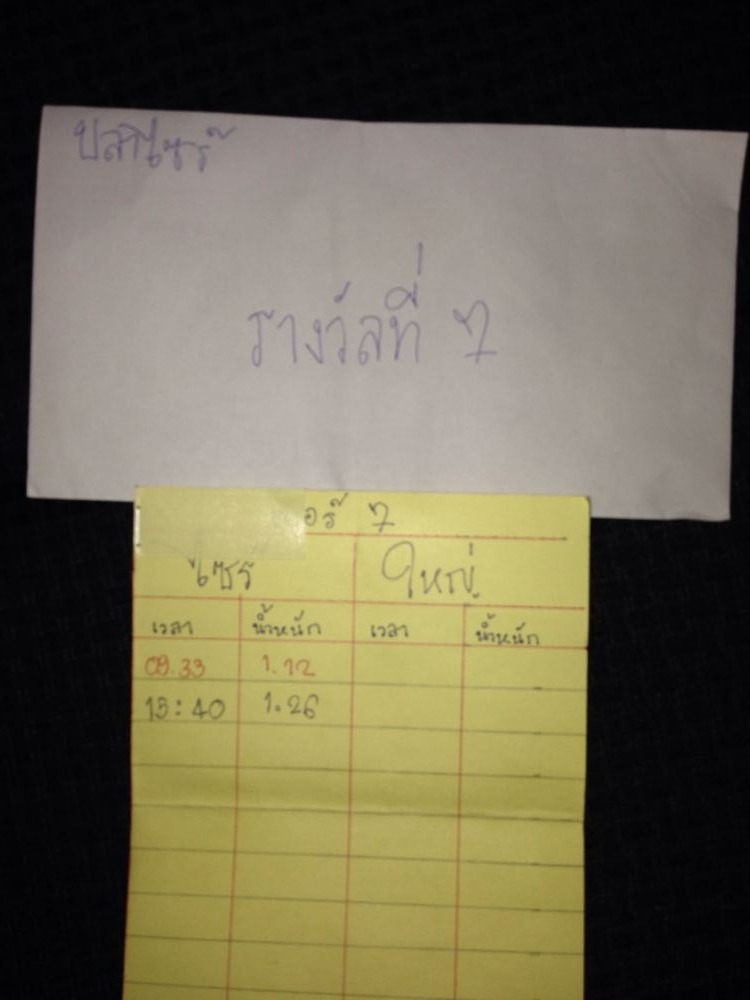 ปลาไซร์
รางวัลที่ 7
อร์ 7
ไซร์ ใหญ่
เวลา น้ำหนัก เวลา น้ำหนัก
09.33 1.12
15:40 1.26